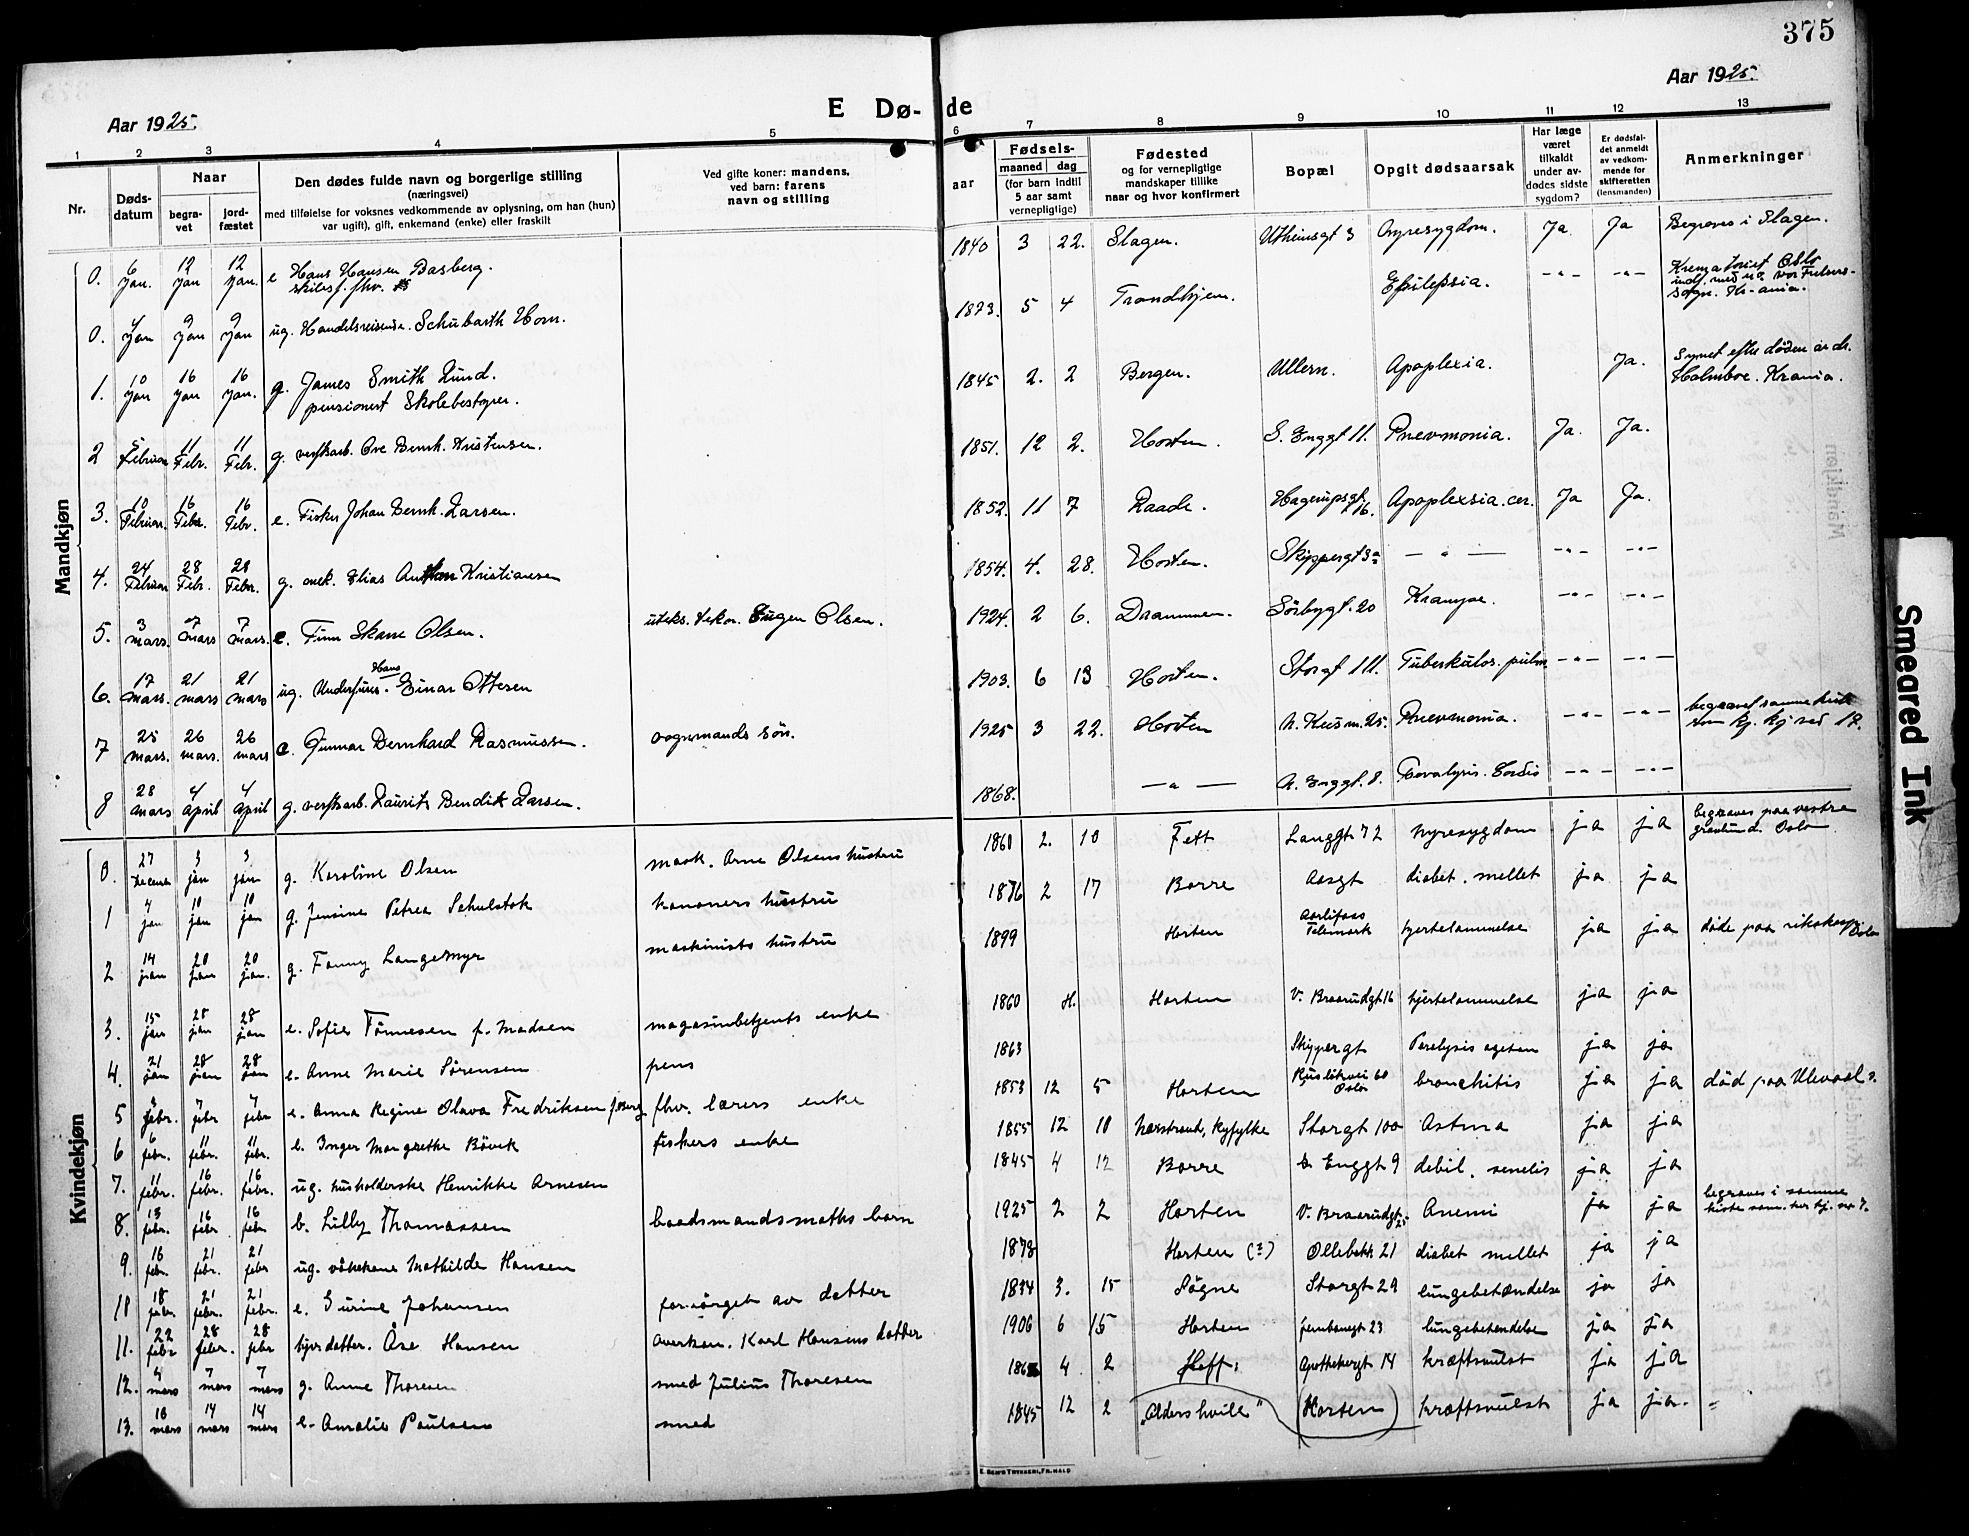 375
Aar 1925.
Aar 1925.
E Dø- de
1 2 3 4 5 6 7 8 9 10 11 12 13
Nr.
Døds-
datum
Naar
begra-
vet
jord-
fæstet
Den dødes fulde navn og borgerlige stilling
(næringsvei)
med tilføielse for voksnes vedkommende av oplysning, om han (hun)
var ugift), gift, enkemand (enke) eller fraskilt
Ved gifte koner: mandens,
ved barn: farens
navn og stilling
Fødsels-
aar
maaned dag
(for barn indtil
5 aar samt
vernepligtige)
Fødested
og for vernepligtige
mandskaper tillike
naar og hvor konfirmert
Bopæl
Opgit dødsaarsak
Har læge
været
tilkaldt
under av-
dødes sidste
sygdom?
Er dødsfal-
det anmeldt
av vedkom-
mende for
skifteretten
(lensmanden)
Anmerkninger
Mandkjøn
0. 6 Jan. 12 Jan 12 Jan. e Hans Hansen Basberg. 1840 3 22. Slagen. Utheimsgt 3 Nyresygdom. Ja Ja Begraves i Slagen.
skibsf. fhv.
0. 4 Jan 9 Jan 9 Jan ug. Handelsreisende. Schubarth Horn. 1873. 5 4 Trondhjem. Epilepsia. -"- -"- Krematoriet Oslo
1. 10 Jan 16 Jan 16 Jan. g. James Smith Lund. 1845 2. 2 Bergen. Ullern. Apoplexia. Ja. Synet efter døden av dr.
pensionert Skolebestyrer. Holmboe. Krania.
2 5 Februar 11 Febr. 11 Febr. g. verftsarb. Ove Bernh. Kristensen. 1851. 12 2. Horten. S. Enggt 11. Pnevmonia. Ja. Ja.
3. 10 Februar. 16 Febr. 16 Febr. e. Fisker Johan Bernh. Larsen. 1852. 11 7 Raade. Hagerupsgt. 16. Apoplexsia. cer. Ja Ja.
4. 24 Februar 28 Febr. 28 Febr. g. Elias Anthon Kristiansen 1854. 4. 28. Horten. Skippergt 3a — " — -"- -"-
5. 3 mars. 7 mars 7 mars. Finn Skare Olsen. Eugen Olsen. 1924. 2 6. Drammen. Sörbygt. 20 Krampe. -"- -"-
6. 17 mars. 21 mars 21 mars ug. Hans Einar Ottesen 1903. 6 13 Horten. Storgt 111. Tuberkulos. pulm -"- -"-
7 25 mars. 26 mars. 26 mars Gunnar Bernhard Rasmussen. vognmands sön. 1925 3 22. Horten Pnevmonia. -"- -"- begravet samme kiste
som kj. kj ned 19.
8 28 mars 4 april 4 april g. verftsarb. Laurits Bendik Larsen. 1868. — " — N. Enggt. 8. -"- -"-
Kvindekjøn
0. 27 december 3 jan 3 jan g. Karoline Olsen mask. Arne Olsens hustru 1860 2. 10 Fett Langgt 72 nyresygdom ja ja begraves paa vestre
gravlund. Oslo.
1 4 jan 10 jan 10 jan g. Jensine Petrea Schulstok kanoners hustru 1876 2 17 Borre Aasgt diabet. mellet ja ja
2 14 jan 20 jan 20 jan. g. Fanny Langemyr maskinists hustru 1899 Horten Telemark hjertelammelse ja ja døde paa rikshosp Oslo
3. 15 jan 28 jan 28 jan e. Sofie Tönnesen f. Madsen magasinbetjents enke 1860 Horten V. Braarudgt 16 hjertelammelse ja ja
4. 21 jan 28 jan 28 jan e. Anne Marie Sörensen pens 1863 Skippergt Paralysis agitan ja ja
5 febr. 7 febr 7 febr e. Anna Regine Olava Fredriksen f. Berg fhv. lærers enke 1853 12 5 Horten 60 Oslo bronchitis ja ja død paa Ulevaal s.
6 6 febr. 11 febr. 11 febr. e. Inger Margrethe Bövik fiskers enke 1855 12 10 Nærstrand, Ryfylke Storgt 100 Astma ja ja
7. 11 febr. 16 febr. 16 febr. ug. husholderske Henrikke Arnesen 1845 4 12 Borre Enggt 9 debil. senelis ja ja
8. 13 febr. 16 febr. 16 febr b. Lilly Thomassen baadsmandsmaths barn 1925 2 2 Horten V. Braarudgt. Anemi ja ja begraves i samme
kiste som
9. 16 febr. 21 febr. 21 febr ug. Mathilde Hansen 1878 Horten (?) Ollebakk 21 diabet mellet ja ja
10 18 febr. 21 febr. 21 febr. e. Gurine Johansen forsörget av datter 1844 3. 15 Sögne Storgt 29 lungebetændelse ja ja
11. 22 febr 28 febr. 28 febr hjv. datter. Åse Hansen Karl Hansens datter 1906 6 15 Horten Jernbanegt 23 lungebetendelse ja ja
12. 4 mars 7 mars 7 mars g. Anne Thoresen smed Julius Thoresen 4 2 Hoff. Apothekergt 14 kræftsvulst ja ja
13. 10 mars 14 mars 14 mars e. Amalie Paulsen smed 1845 12 2 „Aldershvile" (Horten) kræftsvulst ja ja.
Smeared Ink